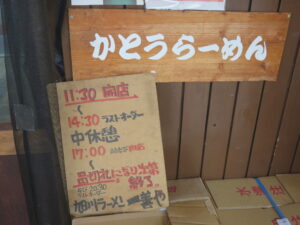 かとうらーめん
11:30 開店
〜
14:30 ラストオーダー
中休憩
17:00
〜
品切れになり次第
終了
20:30
旭川ラーメン